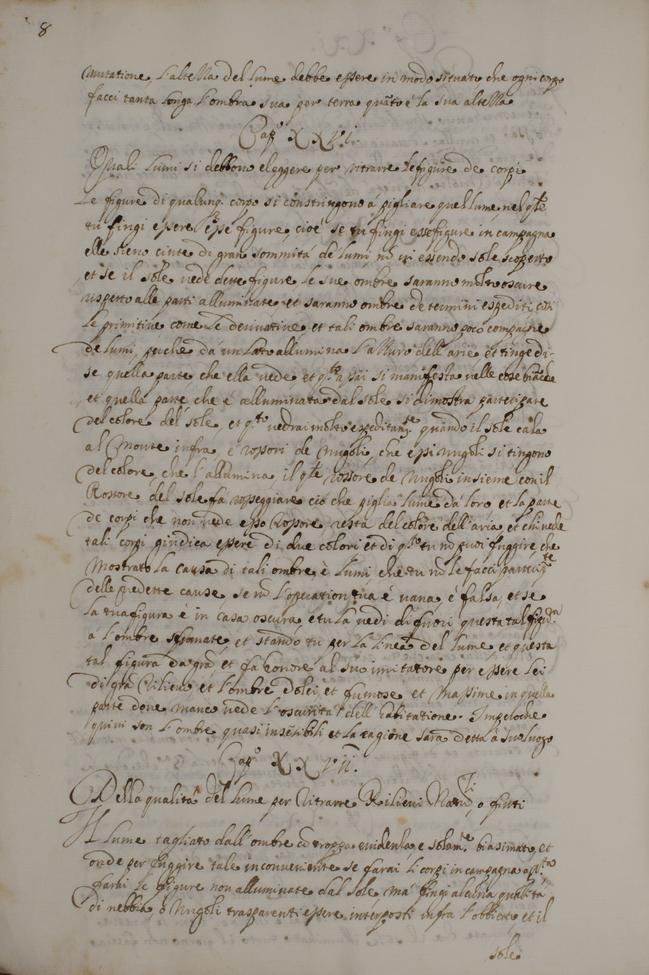 8
mutatione, l'altezza del lume debbe essere in modo situato che ogni corpo
facci tanta longa l'ombra sua per terra quãto è la sua altezza
Cap.º XXVI.
Quali lumi si debbono eleggere per ritrarre le figure de corpi
Le figure di qualunq. corpo si constringono a pigliare quel lume, nel q.le
tu fingi essere esse figure, cioè se tu fingi esse figure in campagna
elle sieno cinte di gran sommità de lumi, nõ vi essendo sole scoperto
et se il sole vede dette figure le sue ombre saranno molto oscure
rispetto alle parti alluminate et saranno ombre de termini espediti così
le primitive come le derivative et tali ombre saranno poco compagne
de lumi, perche da un lato allumina l'azzurro dell'arie et tinge di
se quella parte che ella vede et q.to assai si manifesta nelle cose biãche
et quella parte che è alluminata dal sole si dimostra partecipare
del colore del sole, et q.to vedrai molto espeditam.te quando il sole cala
al Monte infra i rossori de Nugoli, che essi Nugoli si tingono
del colore che l'allumina, il q.le rossore de Nugoli insieme con il
Rossore del sole fa rosseggiare ciò che piglia lume da loro et la parte
de corpi che non vede esso rossore resta del colore dell'aria et chi vede
tali corpi giudica essere di due colori et di q.to tu nõ puoi fuggire che
mostrato la causa di tali ombre e lumi che tu nõ le facci
delle predette cause, se nõ l'operation tua è vana, e falsa, et se
la tua figura è in casa oscura et tu la vedi di fuori questa tal figura
a l'ombre sfumate, et stando tu per la linea del lume, et questa
tal figura da gra.a et fa honore al suo imitatore per essere lei
di grã rilievo et l'ombre dolci et fumose et massime in quella
parte dove manco vede l'oscurità dell'habitatione. Impeloche
quivi son l'ombre quasi insẽsibili et la cagione sarà detta a suo luogo
Cap.º XXVII.
Della qualita del lume per Ritrarre Rilievi Naturali, o finti
Il lume tagliato dall'ombre cõ troppa evidentia e som̃am.te biasimato, et
onde per fuggire tale inconveniente se farai li corpi in campagna
farai le figure non alluminate dal sole, ma fingi alcuna qualità
di nebbia o Nugoli trasparenti essere interposti infra l'obbietto et il
sole